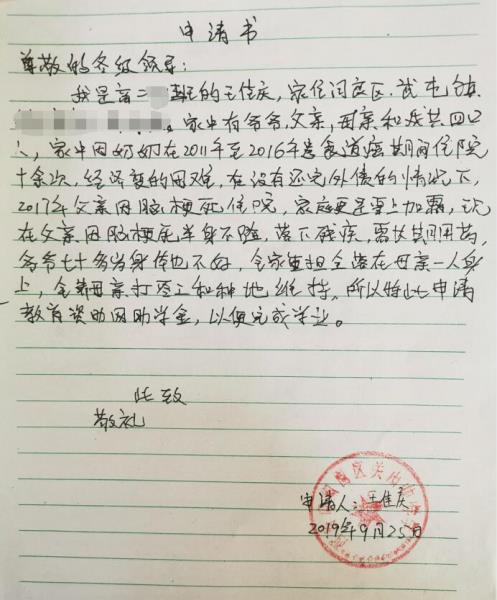 申请书
尊敬的各级领导：
我是高二 班的王佳庆，家住阎良区武屯镇
。家中有爷爷，父亲，母亲和我共四口
人，家中因奶奶在2011年至2016年患食道癌其间住院
十余次，经济变的困难，在没有还完外债的情况下，
2017年父亲因脑梗死住院，家庭更是雪上加霜，现
在父亲因脑梗死半身不遂，落下残疾，需长期用药，
爷爷七十多岁身体也不好，全家重担全落在母亲一人身
上，全靠母亲打零工和种地维持。所以特此申请
教育资助网助学金，以便完成学业。
此致
敬礼
申请人：王佳庆
2019年9月25日